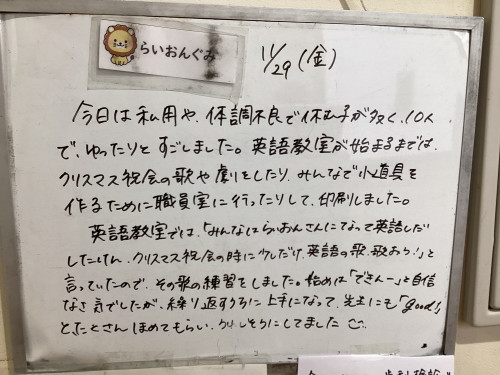 らいおんぐみ
11/29（金）
今日は私用や、体調不良で休む子が多く、10人
で、ゆったりと すごしました。英語教室が始まるまでは、
クリスマス祝会の歌や劇をしたり、みんなで小道具を
作るために職員室に行ったりして、印刷しました。
英語教室では、「みんならいおんさんになって英語しだ
したけん、クリスマス祝会の時に少しだけ、英語の歌、歌おう！」と
言っていたので、その歌の練習をしました。始めは「できんー」と自信
なさ気でしたが、繰り返すうちに上手になって、先生にも「good!」
と、たくさん ほめてもらい、うれしそうにしてました